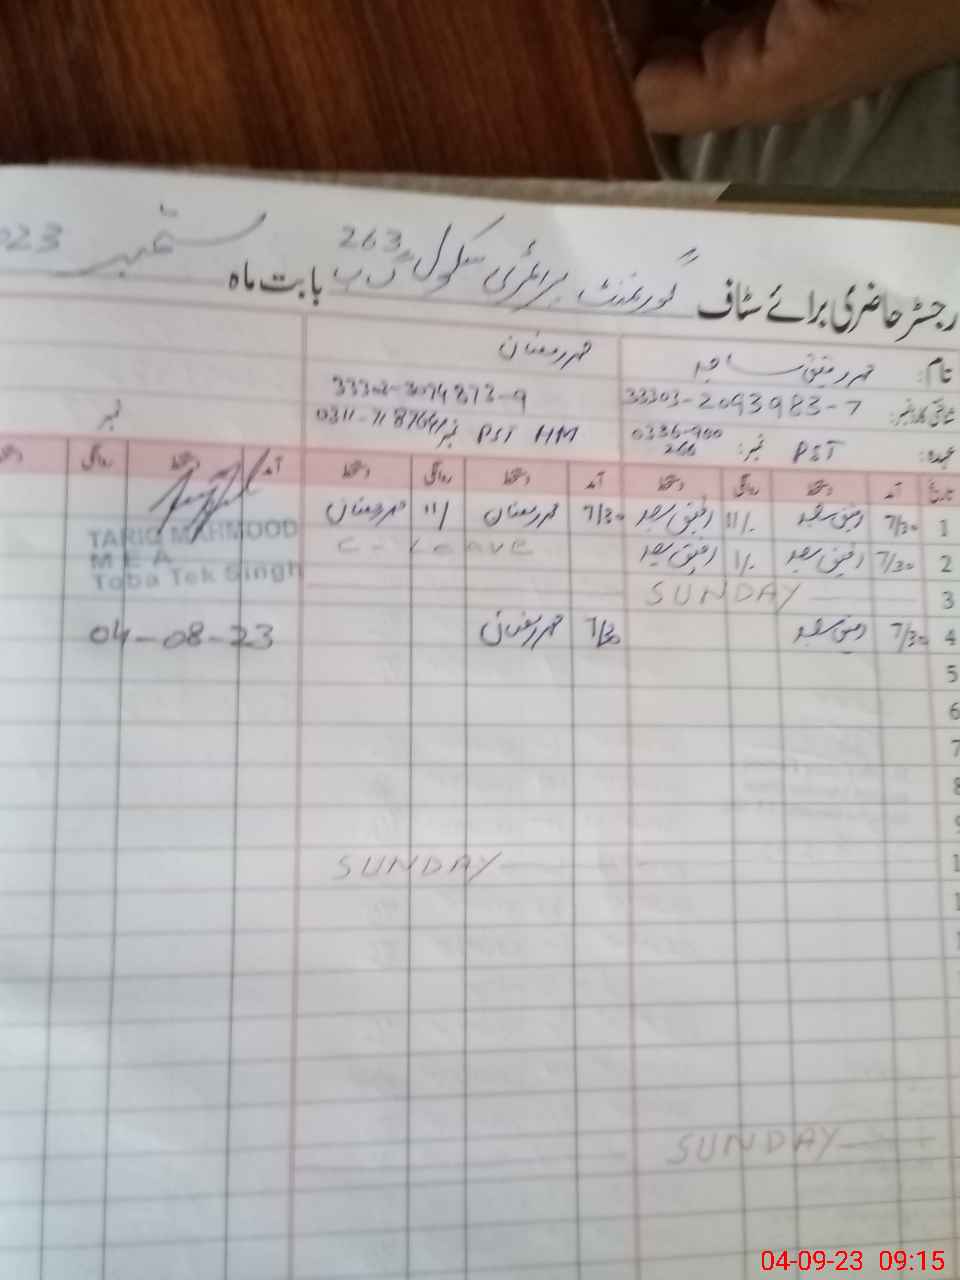 رجسٹر حاضری برائے سٹاف گورنمنٹ پرائمری سکول 263 گ ب بابت ماہ ستمبر 2023
نام: محمد رفیق ساجد محمد رمضان
شناختی کارڈ نمبر: 33303-2093983-7 33303-3074873-9
عہدہ: PST نمبر: 0336-700 PST HM نمبر 0311-7187641 نمبر
266
تاریخ آمد دستخط روانگی دستخط آمد دستخط روانگی دستخط آمد دستخط روانگی
1 7/30 11/ 7/30 محمد رمضان 11/ محمد رمضان
TARIQ MAHMOOD
2 7/30 1/ C-Leave
M E A
Toba Tek Singh
3 SUNDAY
4 7/30 7/30 محمد رمضان 04-08-23
5
6
7
8
9
SUNDAY
SUNDAY
04-09-23 09:15